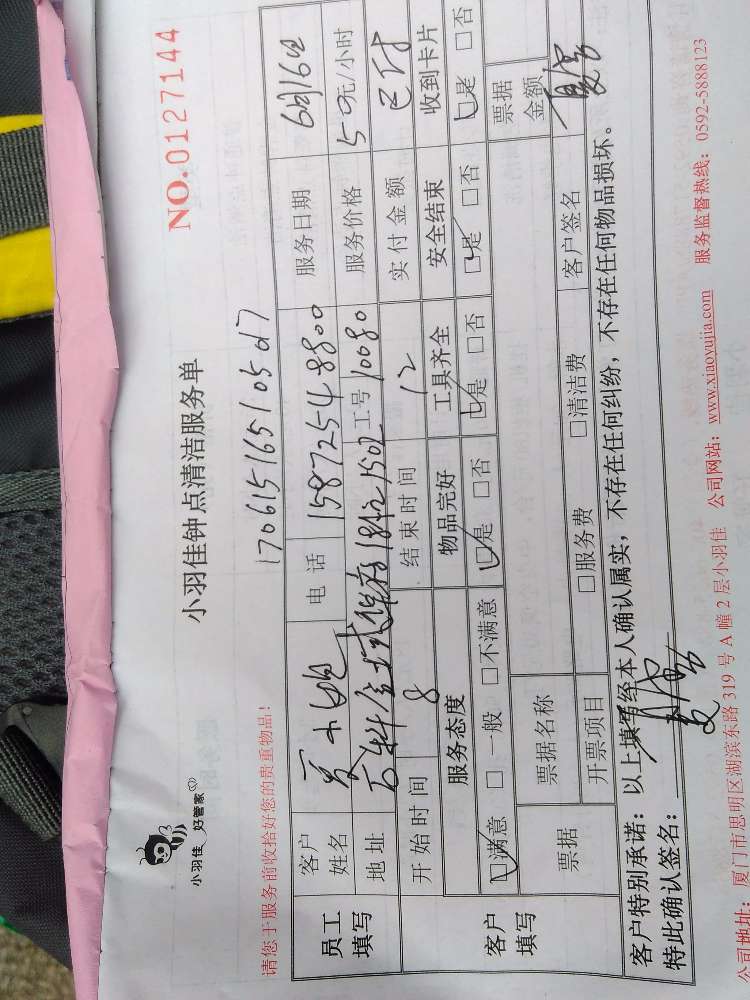 小羽佳 好管家
小羽佳钟点清洁服务单
NO.0127144
请您于服务前收拾好您的贵重物品！
170615165105017
员工填写 客户姓名 电话 15872548800 服务日期 6月16日
地址 1502 工号 10080 服务价格 50元/小时
开始时间 8 结束时间 12 实付金额 已付
客户填写 服务态度 物品完好 工具齐全 安全结束 收到卡片
☑满意 □一般 □不满意 ☑是 □否 ☑是 □否 ☑是 □否 ☑是 □否
票据 票据名称 票据金额
开票项目 □服务费 □清洁费 客户签名
客户特别承诺：以上填写经本人确认属实，不存在任何纠纷，不存在任何物品损坏。
特此确认签名：
公司地址：厦门市思明区湖滨东路 319 号 A 幢 2 层小羽佳 公司网站：www.xiaoyujia.com 服务监督热线：0592-5888123